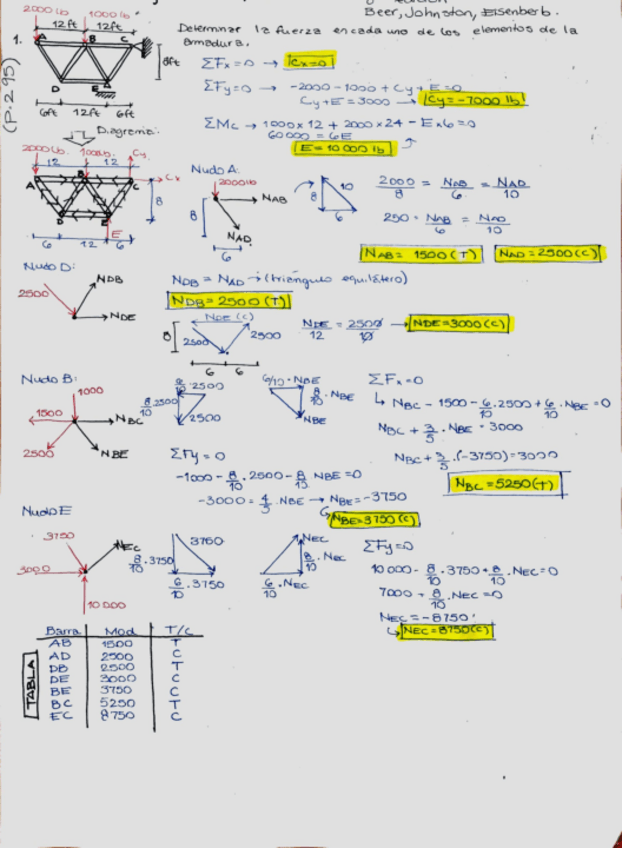 Beer, Johnston, Eisenberb.
Determinar la fuerza en cada uno de los elementos de la
armadura.
1.
(P.295)
2000 lb 1000 lb
12ft 12ft
A B C
8ft
D E
6ft 12ft 6ft
ΣFx=0 → Cx=0
ΣFy=0 → -2000-1000 + Cy + E = 0
Cy+E = 3000 → Cy=-7000 lb
ΣMc → 1000×12 + 2000×24 - E×6=0
60000 = 6E
E = 10 000 lb
Diagrama:
2000 lb. 1000 lb. Cy
12 12
A B C Cx
8
D E
E
6 12 6
Nudo A:
2000 lb
NAB
8
NAD
6
8 10
6
2000/8 = NAB/6 = NAD/10
250 = NAB/6 = NAD/10
NAB = 1500 (T) NAD = 2500 (C)
Nudo D:
2500
NDB
NDE
NDB = NAD → (triángulo equilátero)
NDB = 2500 (T)
NDE (C)
8 2500 2500
6 6
NDE/12 = 2500/10 → NDE = 3000 (C)
Nudo B:
1000
1500 NBC
2500 NBE
6/10·2500
8/10·2500
2500
6/10·NBE
8/10·NBE
NBE
ΣFx=0
↳ NBC - 1500 - 6/10·2500 + 6/10·NBE = 0
NBC + 3/5·NBE = 3000
NBC + 3/5·(-3750) = 3000
NBC = 5250 (T)
ΣFy = 0
-1000 - 8/10·2500 - 8/10 NBE = 0
-3000 = 4/5·NBE → NBE = -3750
NBE = 3750 (C)
Nudo E
3750
NEC
3000
10 000
8/10·3750
3750
6/10·3750
NEC
8/10·NEC
6/10·NEC
ΣFy=0
10 000 - 8/10·3750 + 8/10·NEC = 0
7000 + 8/10·NEC = 0
NEC = -8750
↳ NEC = 8750 (C)
TABLA
Barra Mod T/C
AB 1500 T
AD 2500 C
DB 2500 T
DE 3000 C
BE 3750 C
BC 5250 T
EC 8750 C